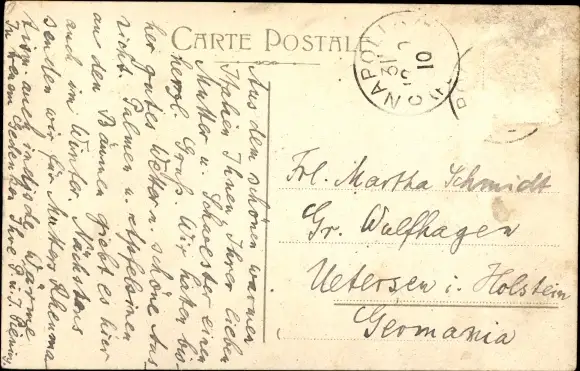 CARTE POSTALE
NAPOLI
31 12
10
Aus dem schönen warmen
Italien Ihnen, Ihrer lieben
Mutter u. Schwester einen
herzl. Gruß. Wir haben bis-
her gutes Wetter u. schöne Aus-
sicht. Palmen u. Apfelsinen
an den Bäumen giebt es hier
auch im Winter. Nächstens
senden wir für Mutters Rheuma
tism auch Wärme
In treuem Gedenken Ihre
Frl. Martha Schmidt
Gr. Wulfhagen
Uetersen i. Holstein
Germania